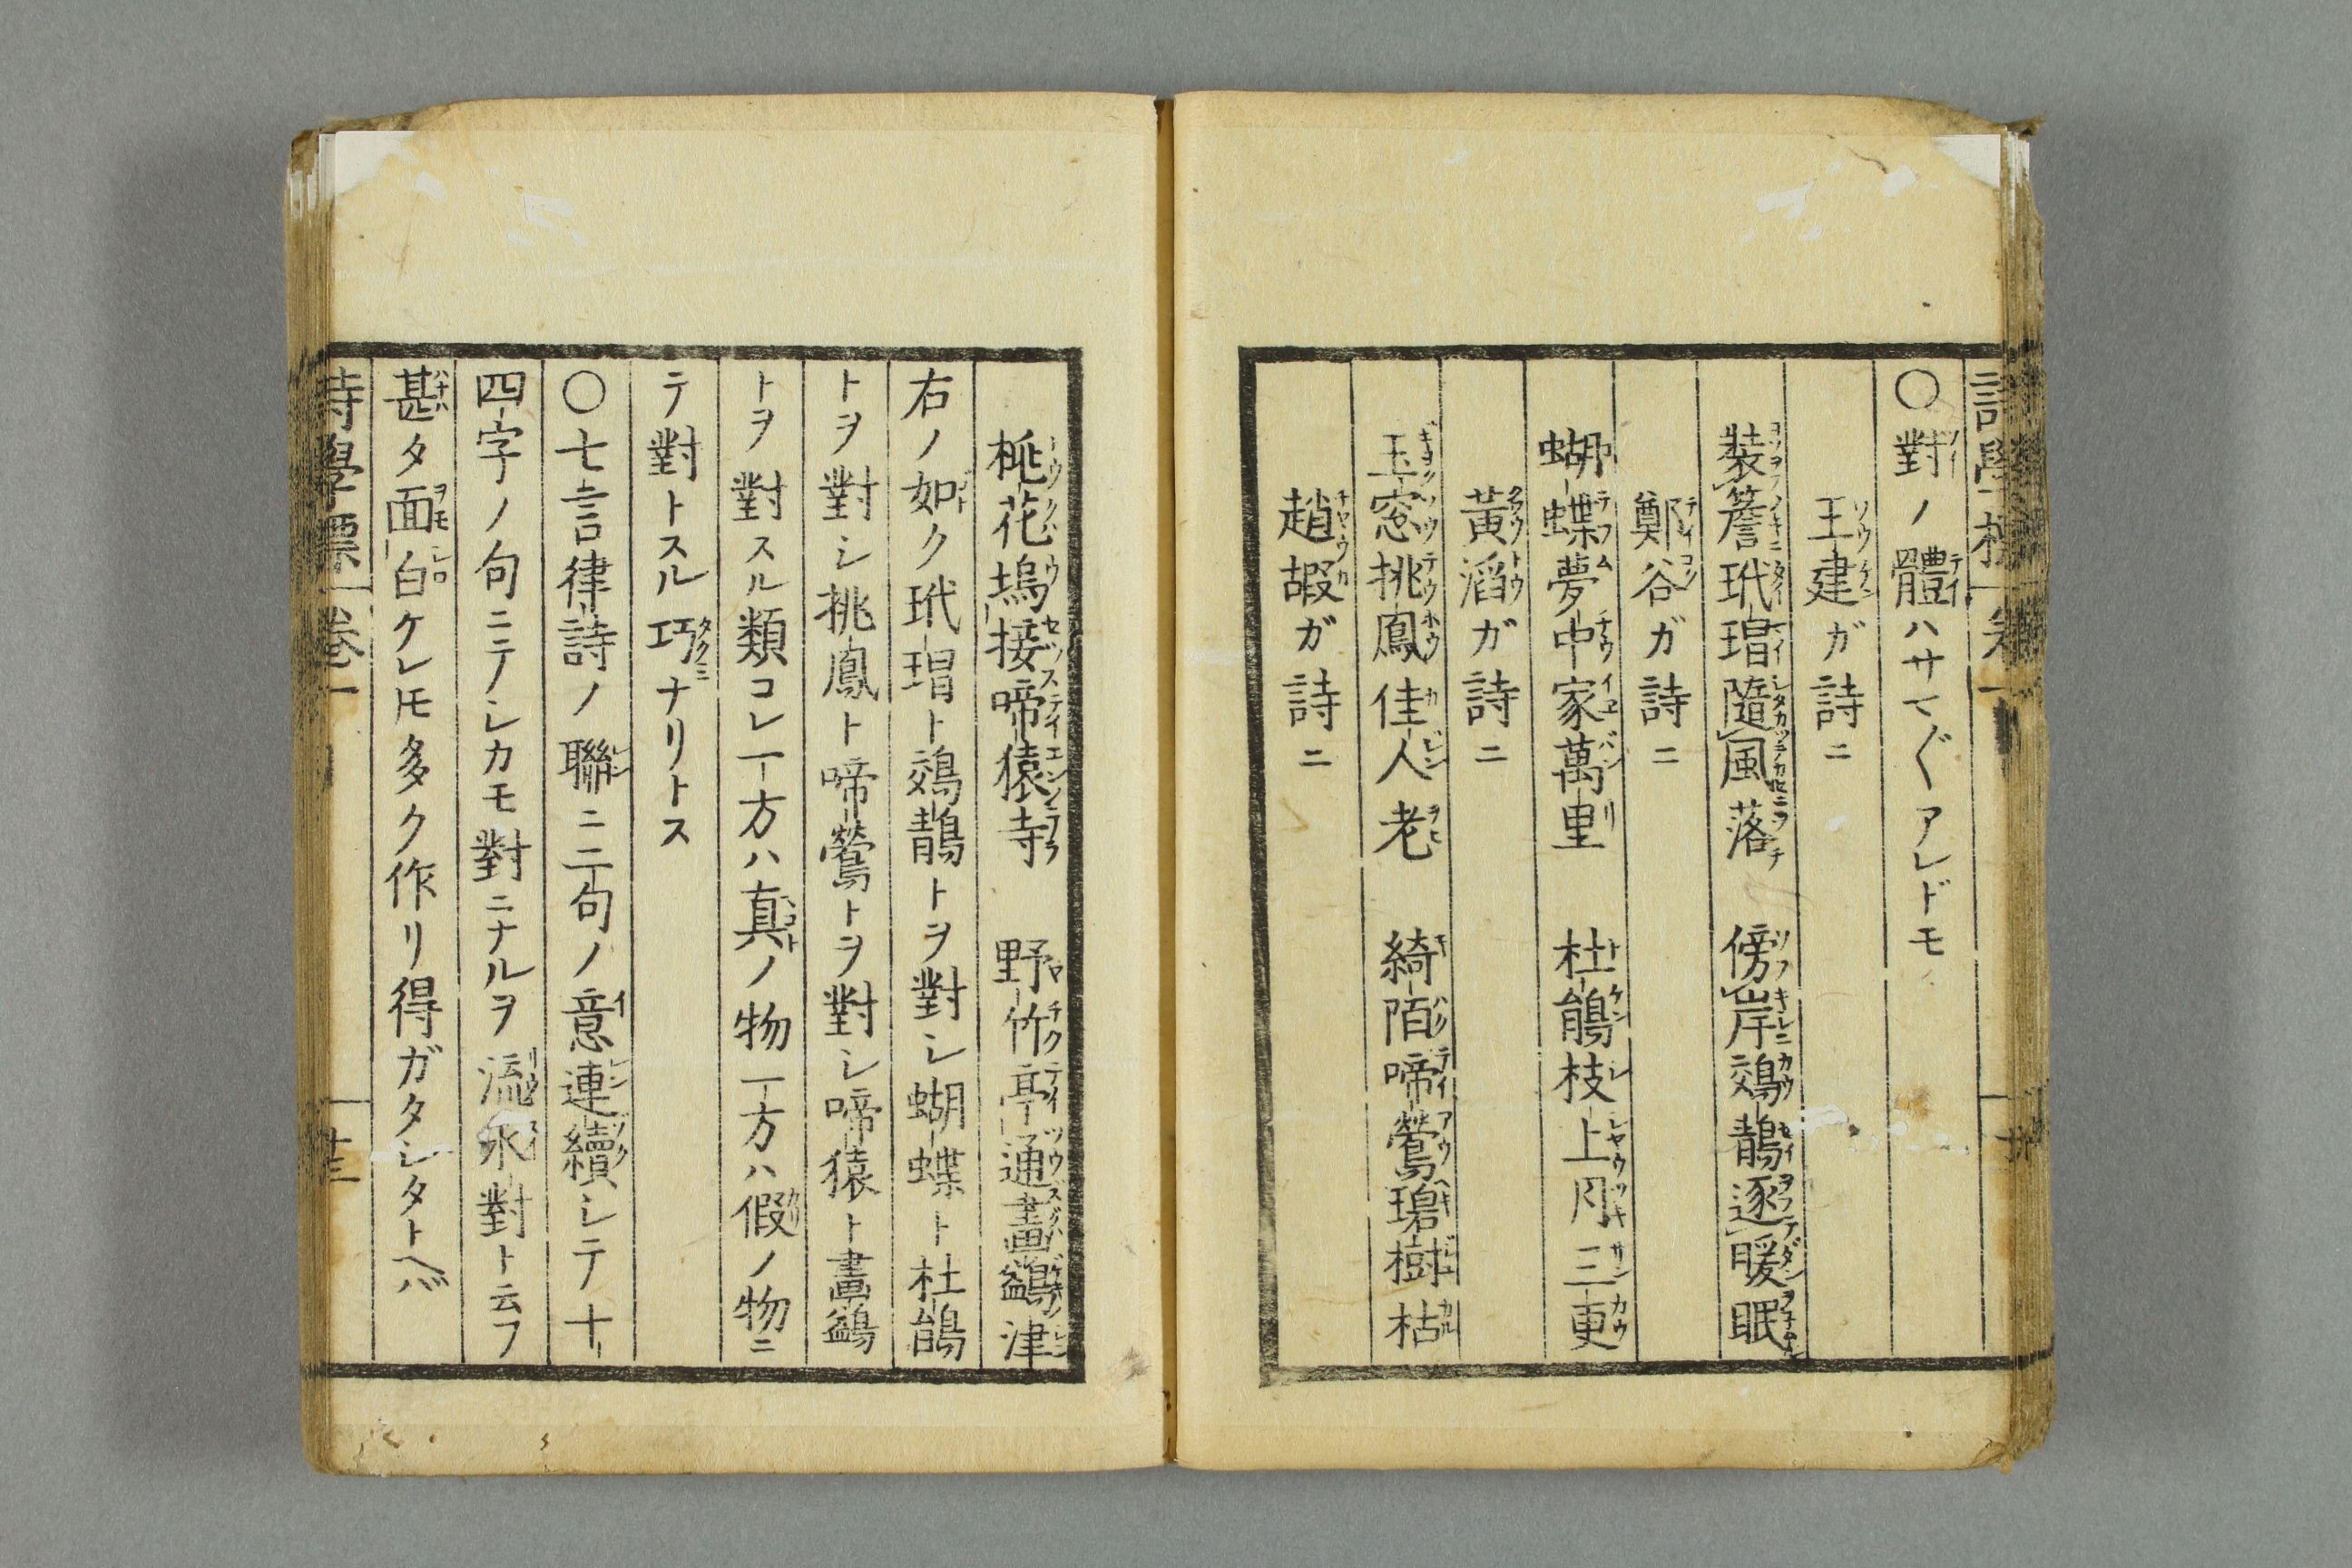 ○對ノ體ハサマ〴〵アレドモ
王建ガ詩ニ
裝簷玳瑁隨風落　傍岸䴔鶄逐暖眠
鄭谷ガ詩ニ
蝴蝶夢中家萬里　杜鵑枝上月三更
黃滔ガ詩ニ
玉窓挑鳳佳人老　綺陌啼鶯碧樹枯
趙嘏ガ詩ニ
桃花塢接啼猿寺　野竹亭通畫鷁津
右ノ如ク玳瑁ト䴔鶄トヲ對シ蝴蝶ト杜鵑
トヲ對シ挑鳳ト啼鶯トヲ對シ啼猿ト畫鷁
トヲ對スル類コレ一方ハ真ノ物一方ハ假ノ物ニ
テ對トスル巧ナリトス
○七言律詩ノ聯ニ二句ノ意連續シテ十
四字ノ句ニテシカモ對ニナルヲ流水對ト云フ
甚タ面白ケレ𪜈多ク作リ得ガタシタトヘバ
詩學標　卷一　十三